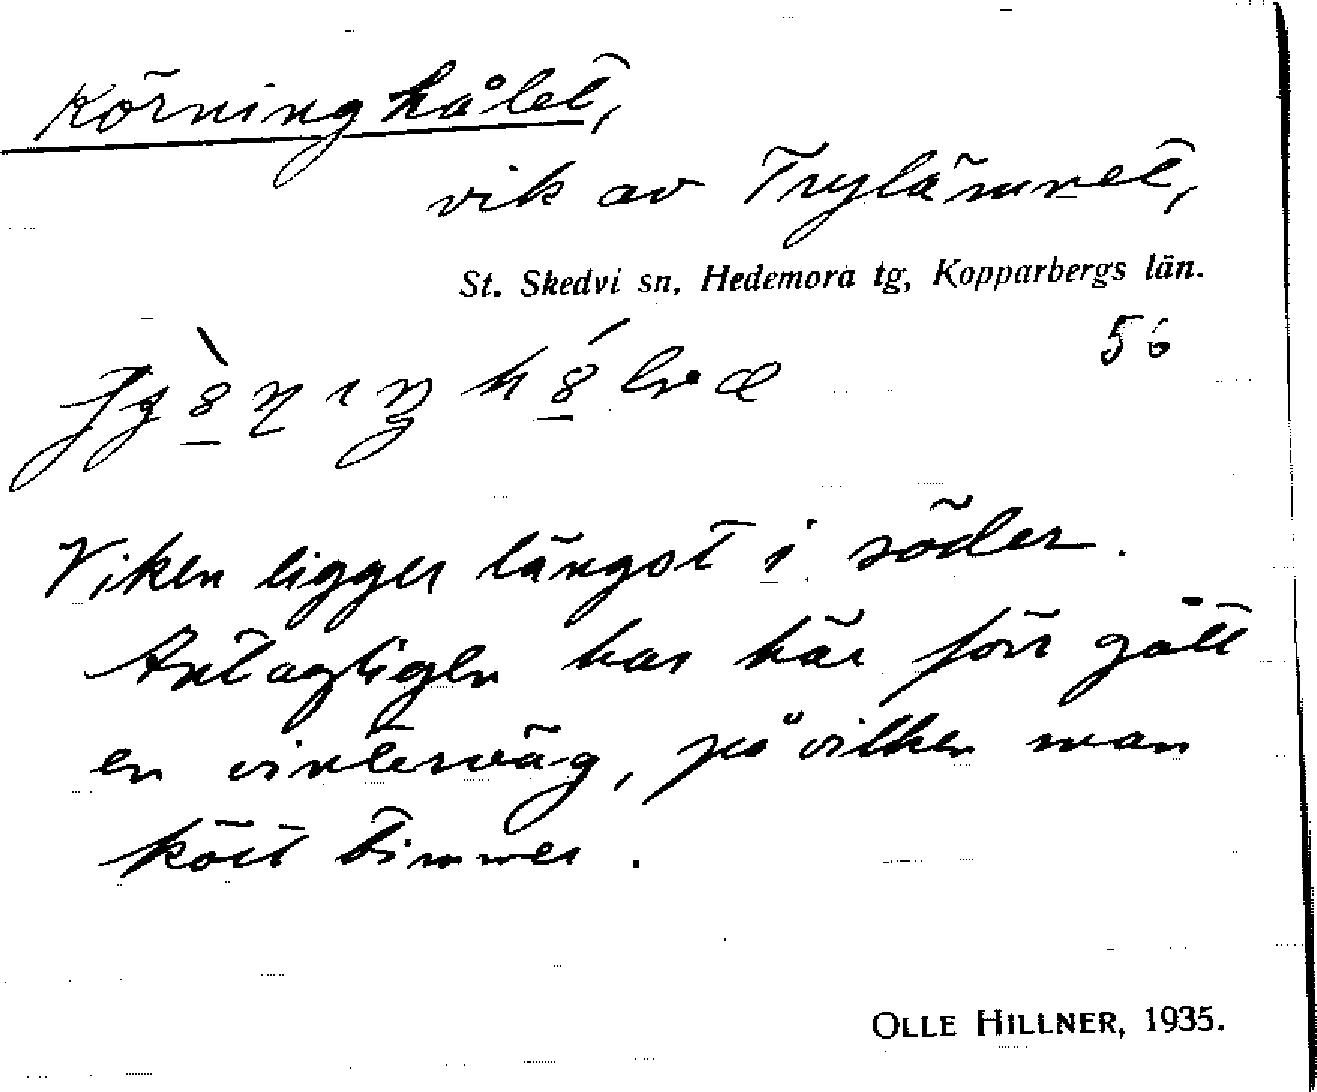 Körninghålet,
vik av Trylämnet,
St. Skedvi sn, Hedemora tg, Kopparbergs län.
56
Viken ligger längst i söder.
Antagligen har här förr gått
en vinterväg, på vilken man
kört timmer.
OLLE HILLNER, 1935.